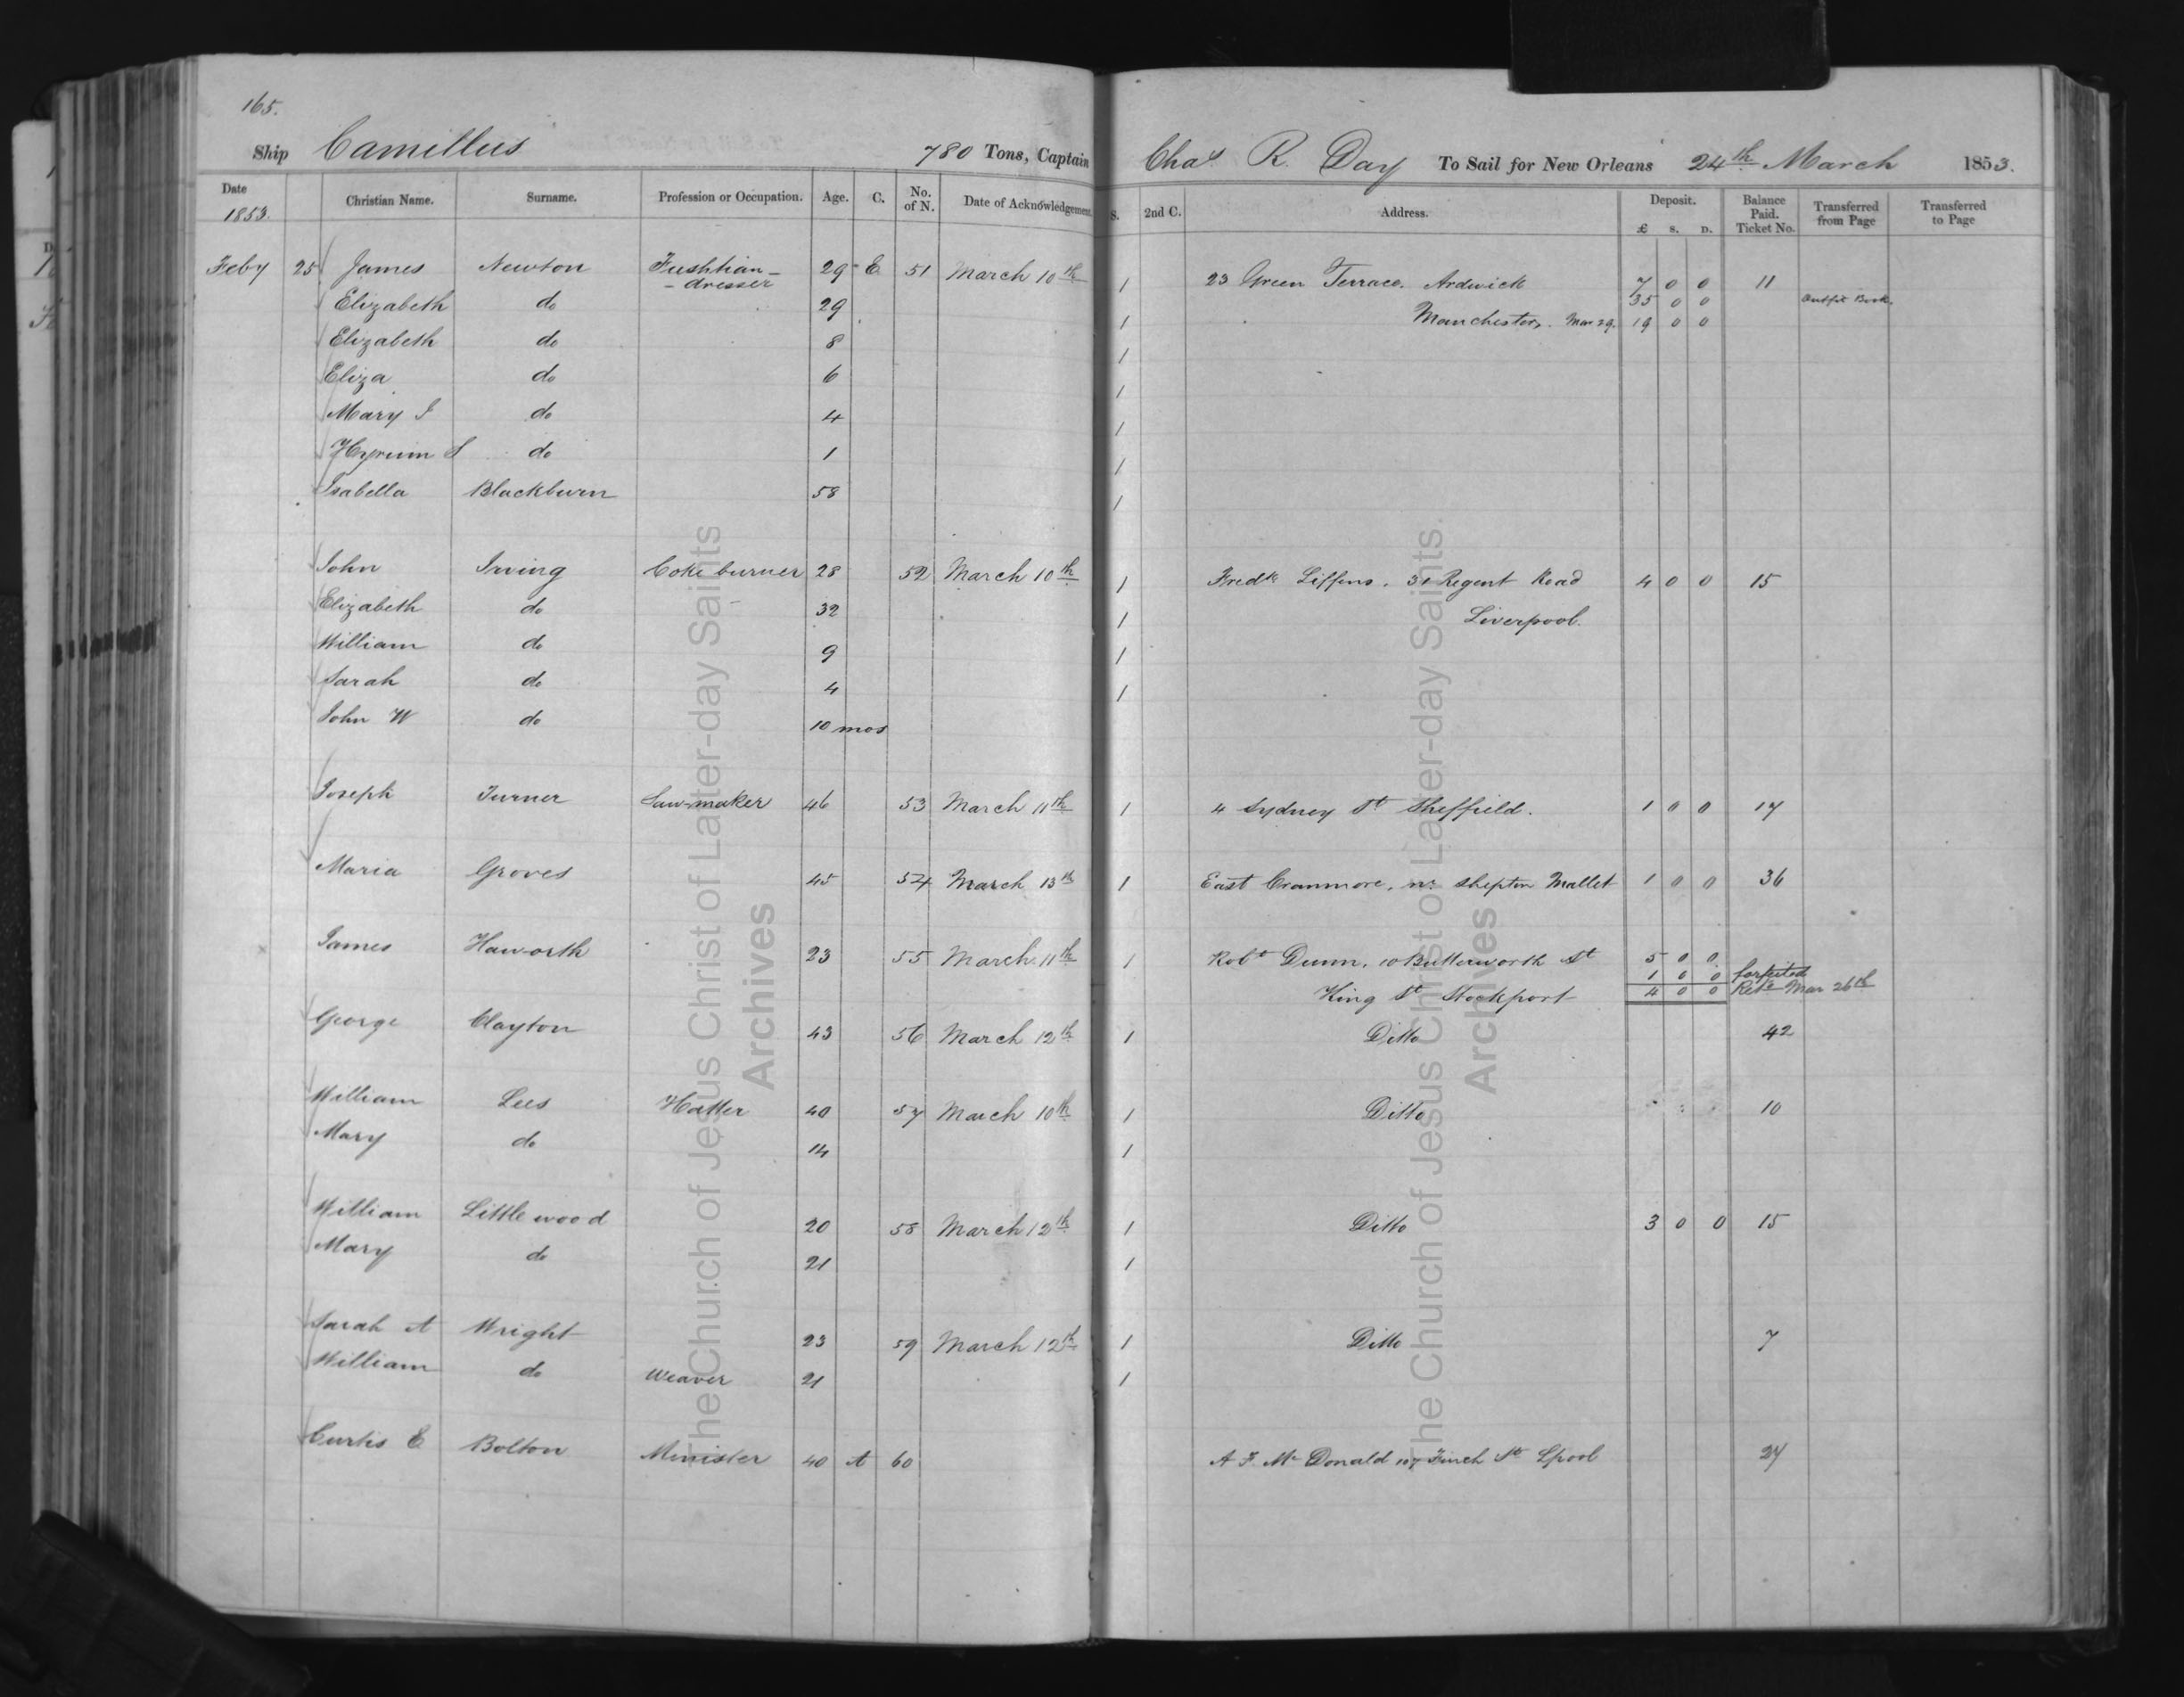 165.
Ship Camillus 780 Tons, Captain Chas R. Day To Sail for New Orleans 24th March 1853.
Date 1853. Christian Name. Surname. Profession or Occupation. Age. C. No. of N. Date of Acknowledgement. S. 2nd C. Address. Deposit. £ s. D. Balance Paid. Ticket No. Transferred from Page Transferred to Page
Feby 25 James Newton Fushtian- 29 E 51 March 10th 1 23 Green Terrace. Ardwick 7 0 0 11
-dresser
Elizabeth do 29 35 0 0 Outfit Book.
1 Manchester. Mar 29. 19 0 0
Elizabeth do 8 1
Eliza do 6 1
Mary J do 4 1
Hyrum S do 1 1
Isabella Blackburn 58 1
John Irving Coke burner 28 52 March 10th 1 Fredk Liffens. 31 Regent Road 4 0 0 15
Elizabeth do 32 1 Liverpool.
William do 9 1
Sarah do 4 1
John W do 10 mos
Joseph Turner Saw-maker 46 53 March 11th 1 4 Sydney St Sheffield. 1 0 0 17
Maria Groves 45 54 March 13th 1 East Cranmore, nr Shepton Mallet 1 0 0 36
James Haworth 23 55 March 11th 1 Robt Dunn, 10 Butterworth St 5 0 0
1 0 0 forfeited
King St Stockport 4 0 0 Retd Mar 26th
George Clayton 43 56 March 12th 1 Ditto 42
William Lees Hatter 40 57 March 10th 1 Ditto 10
Mary do 14 1
William Littlewood 20 58 March 12th 1 Ditto 3 0 0 15
Mary do 21 1
Sarah A Wright 23 59 March 12th 1 Ditto 7
William do Weaver 21 1
Curtis E Bolton Minister 40 A 60 A F. Mc Donald 107 Finch St Lpool 27
The Church of Jesus Christ of Latter-day Saints
Archives
The Church of Jesus Christ of Latter-day Saints.
Archives